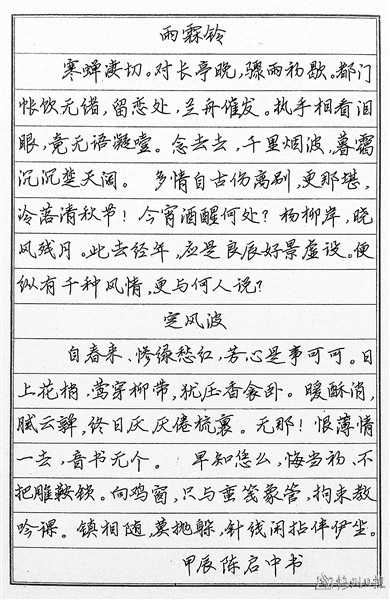 雨霖铃
寒蝉凄切。对长亭晚，骤雨初歇。都门
帐饮无绪，留恋处，兰舟催发。执手相看泪
眼，竟无语凝噎。念去去，千里烟波，暮霭
沉沉楚天阔。 多情自古伤离别，更那堪，
冷落清秋节！今宵酒醒何处？杨柳岸，晓
风残月。此去经年，应是良辰好景虚设。便
纵有千种风情，更与何人说？
定风波
自春来、惨绿愁红，芳心是事可可。日
上花梢，莺穿柳带，犹压香衾卧。暖酥消，
腻云亸，终日厌厌倦梳裹。无那！恨薄情
一去，音书无个。 早知恁么，悔当初、不
把雕鞍锁。向鸡窗，只与蛮笺象管，拘束教
吟课。镇相随，莫抛躲，针线闲拈伴伊坐。
甲辰陈启中书